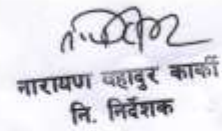 नारायण बहादुर कार्की
नि. निर्देशक